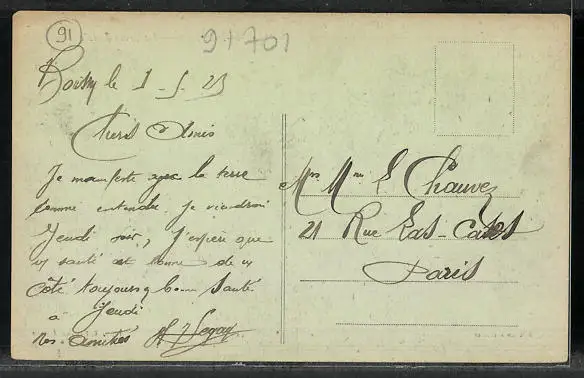 91
91701
Boissy le 1-5-23
Chers Amis
Je manifeste avec la terre
comme entendu, je viendrai
Jeudi soir, J'espère que
vs santé est bonne de vs
côté toujours bonne santé
à Jeudi
Mes Amitiés
Mrs Mme E Chauvez
21 Rue Las-Cases
Paris